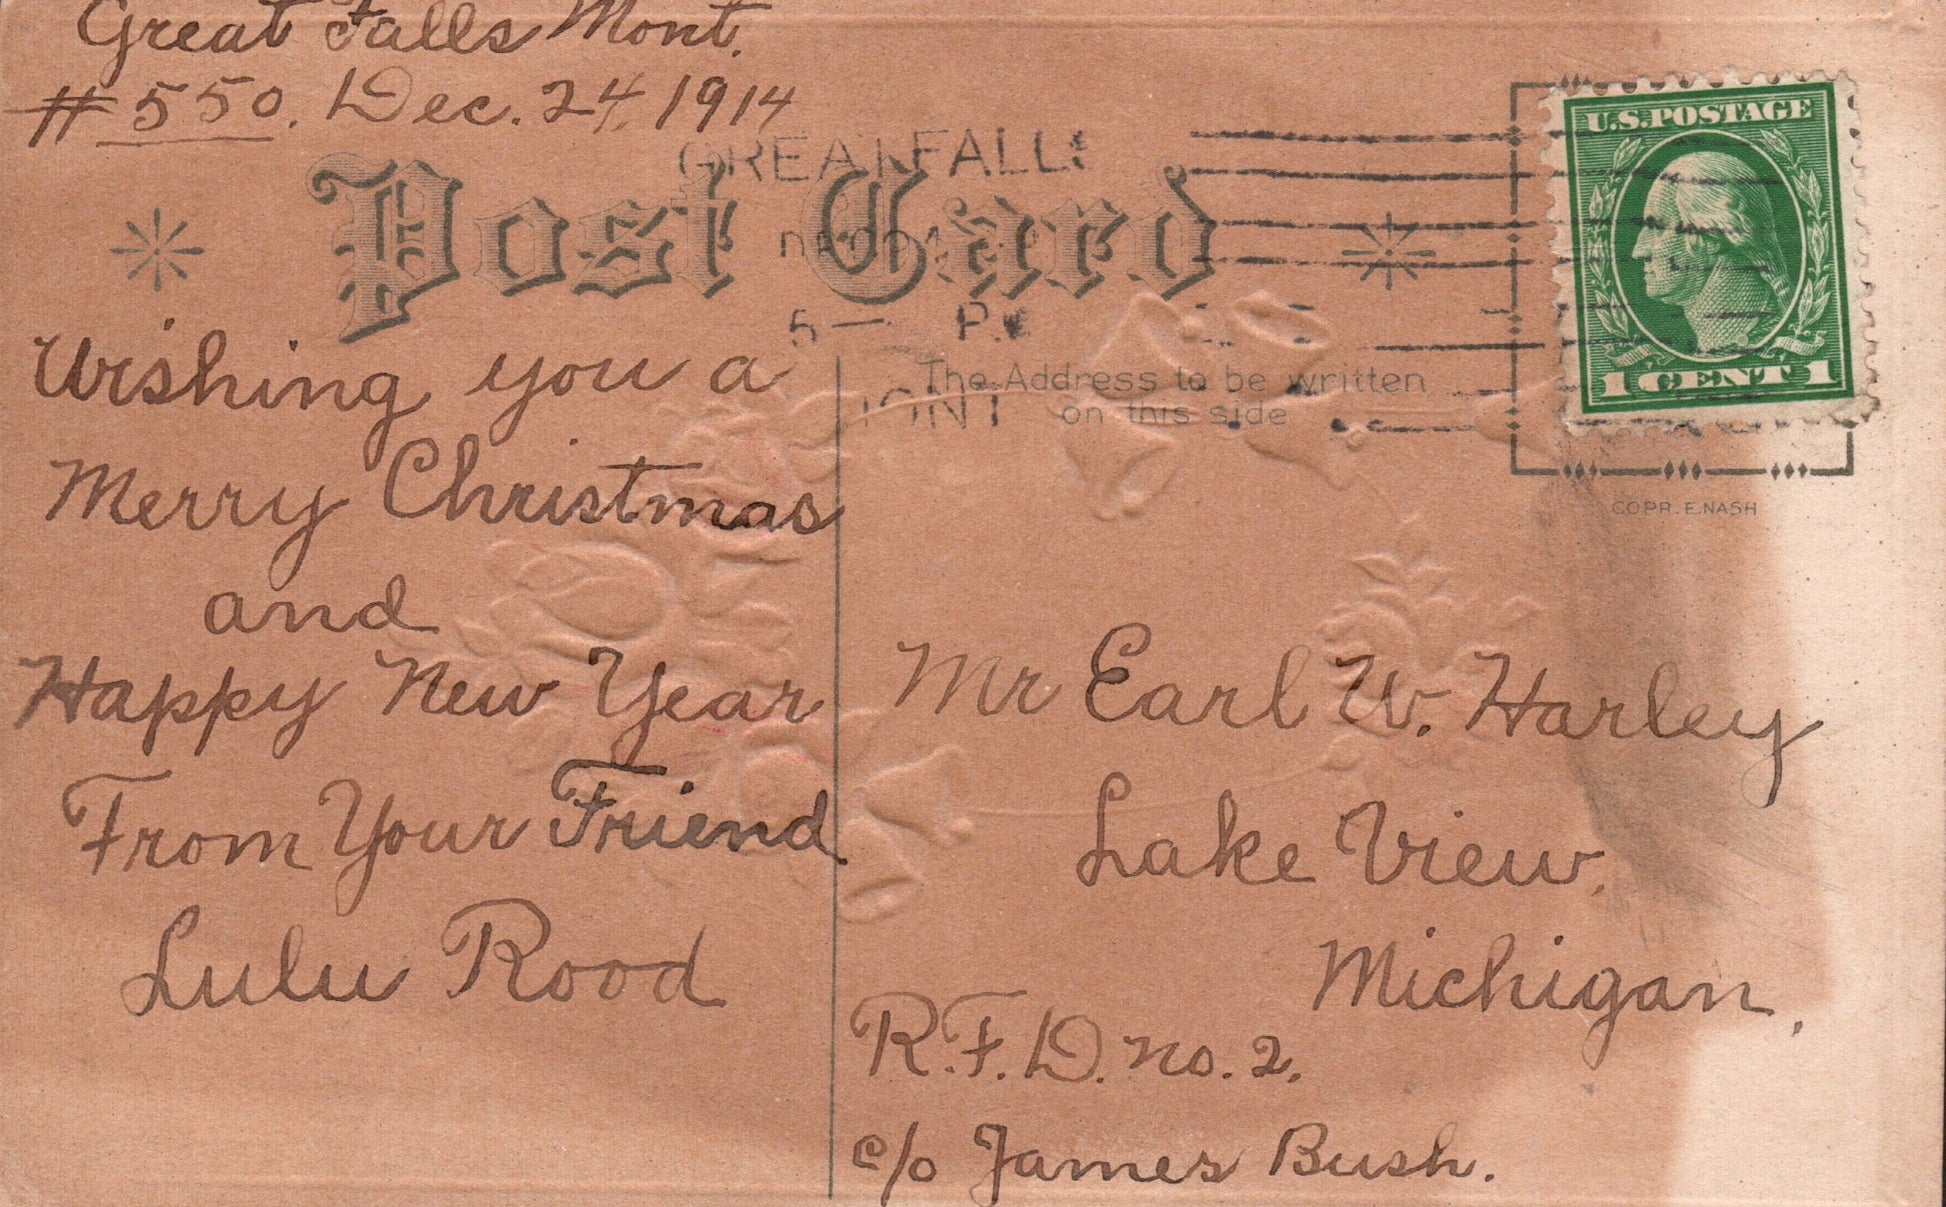 Great Falls Mont.
#550. Dec. 24, 1914
GREAT FALLS
Post Card
5— P.
MONT
U.S. POSTAGE
1 CENT 1
The Address to be written
on this side
COPR. E. NASH
Wishing you a
Merry Christmas
and
Happy New Year
From Your Friend
Lulu Rood
Mr Earl W. Harley
Lake View,
Michigan,
R.F.D. no. 2.
c/o James Bush.